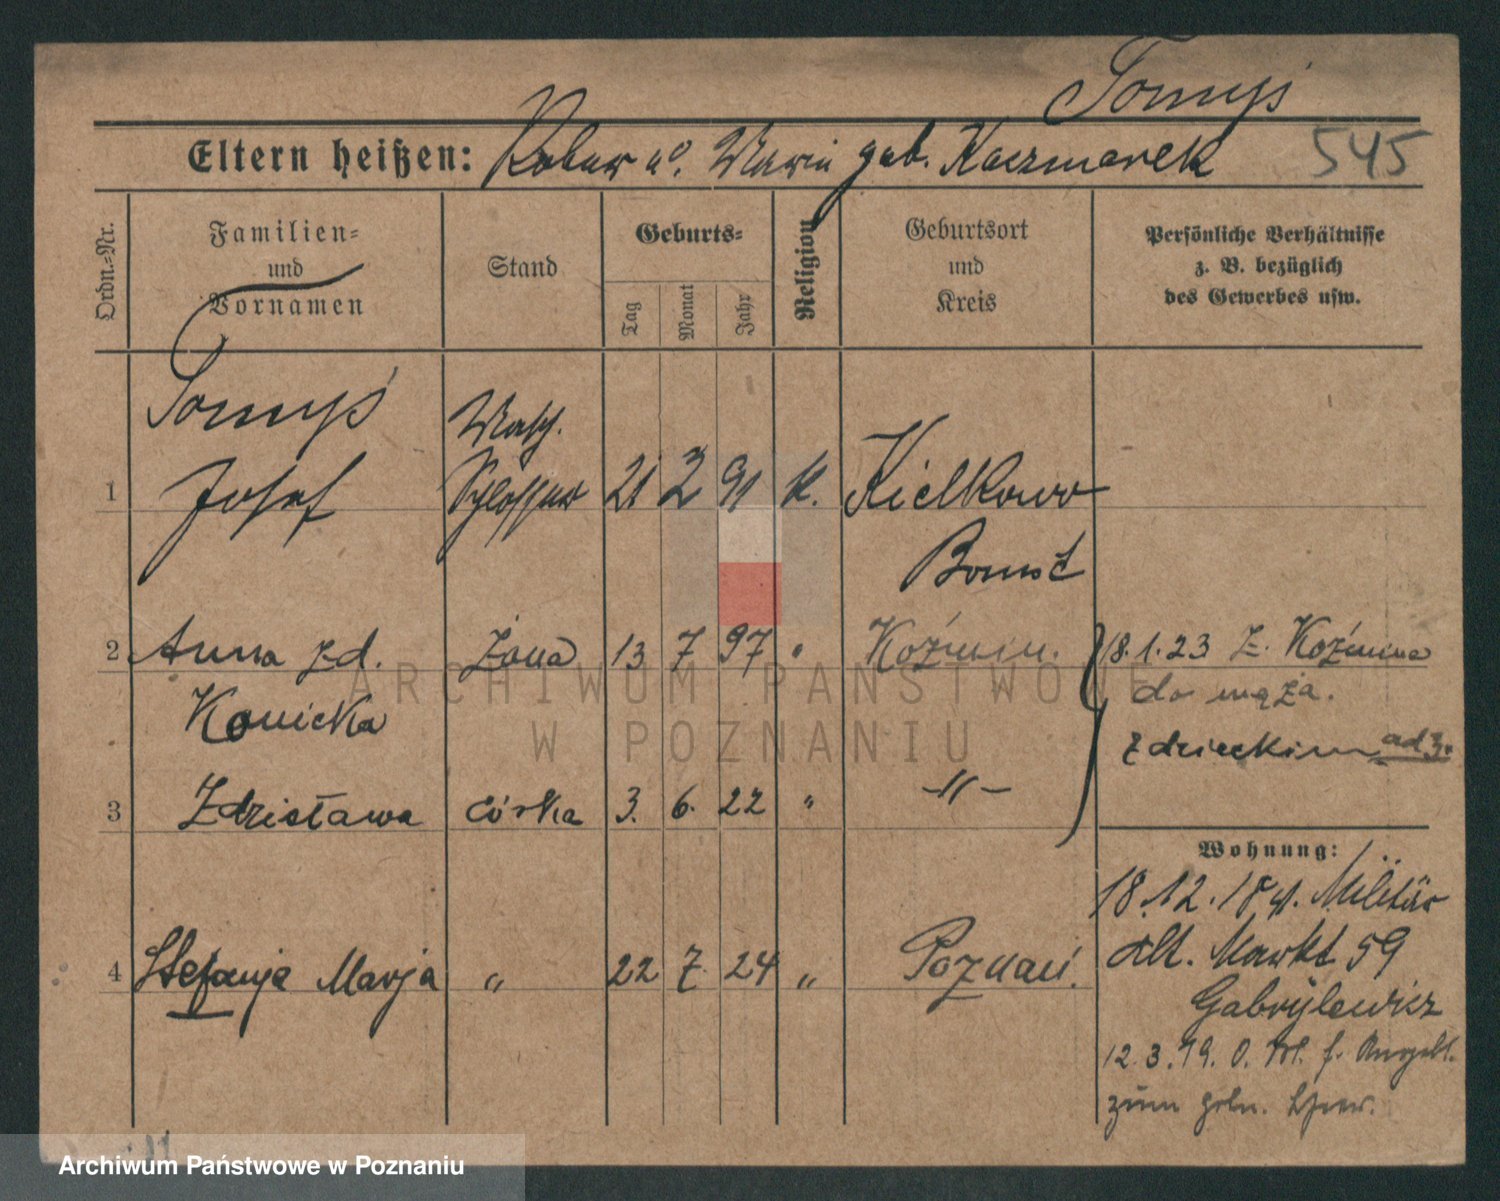 Tomyś
Eltern heißen: Robert u. Maria geb. Kaczmarek 545
Ordn.-Nr.
Familien-
und
Vornamen
Stand
Geburts-
Tag
Monat
Jahr
Religion
Geburtsort
und
Kreis
Persönliche Verhältnisse
z. B. bezüglich
des Gewerbes usw.
Tomyś Masch.
1 Josef Schlosser 21 2 91 k. Kielkowo
Bomst
2 Anna zd. żona 13 7 97 " Koźmin. 18.1.23 z. Koźmina
Konicka do męża.
z dzieckiem ad 3.
3 Zdzisława córka 3. 6. 22 " -"-
Wohnung:
18.12.18 v. Militär
4 Stefanja Marja " 22 7. 24 " Poznań. Alt. Markt 59
Gabrylewicz
12.3.19. O. f.
zum
ARCHIWUM PAŃSTWOWE
W POZNANIU
Archiwum Państwowe w Poznaniu